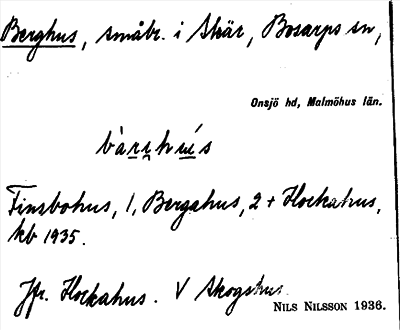 Berghus, småbr. i Skär, Bosarps sn,
Onsjö hd, Malmöhus län.
Finsbohus, 1, Bergahus, 2 + Hockahus,
kb 1935.
Jfr. Hockahus. V Skogshus.
NILS NILSSON 1936.